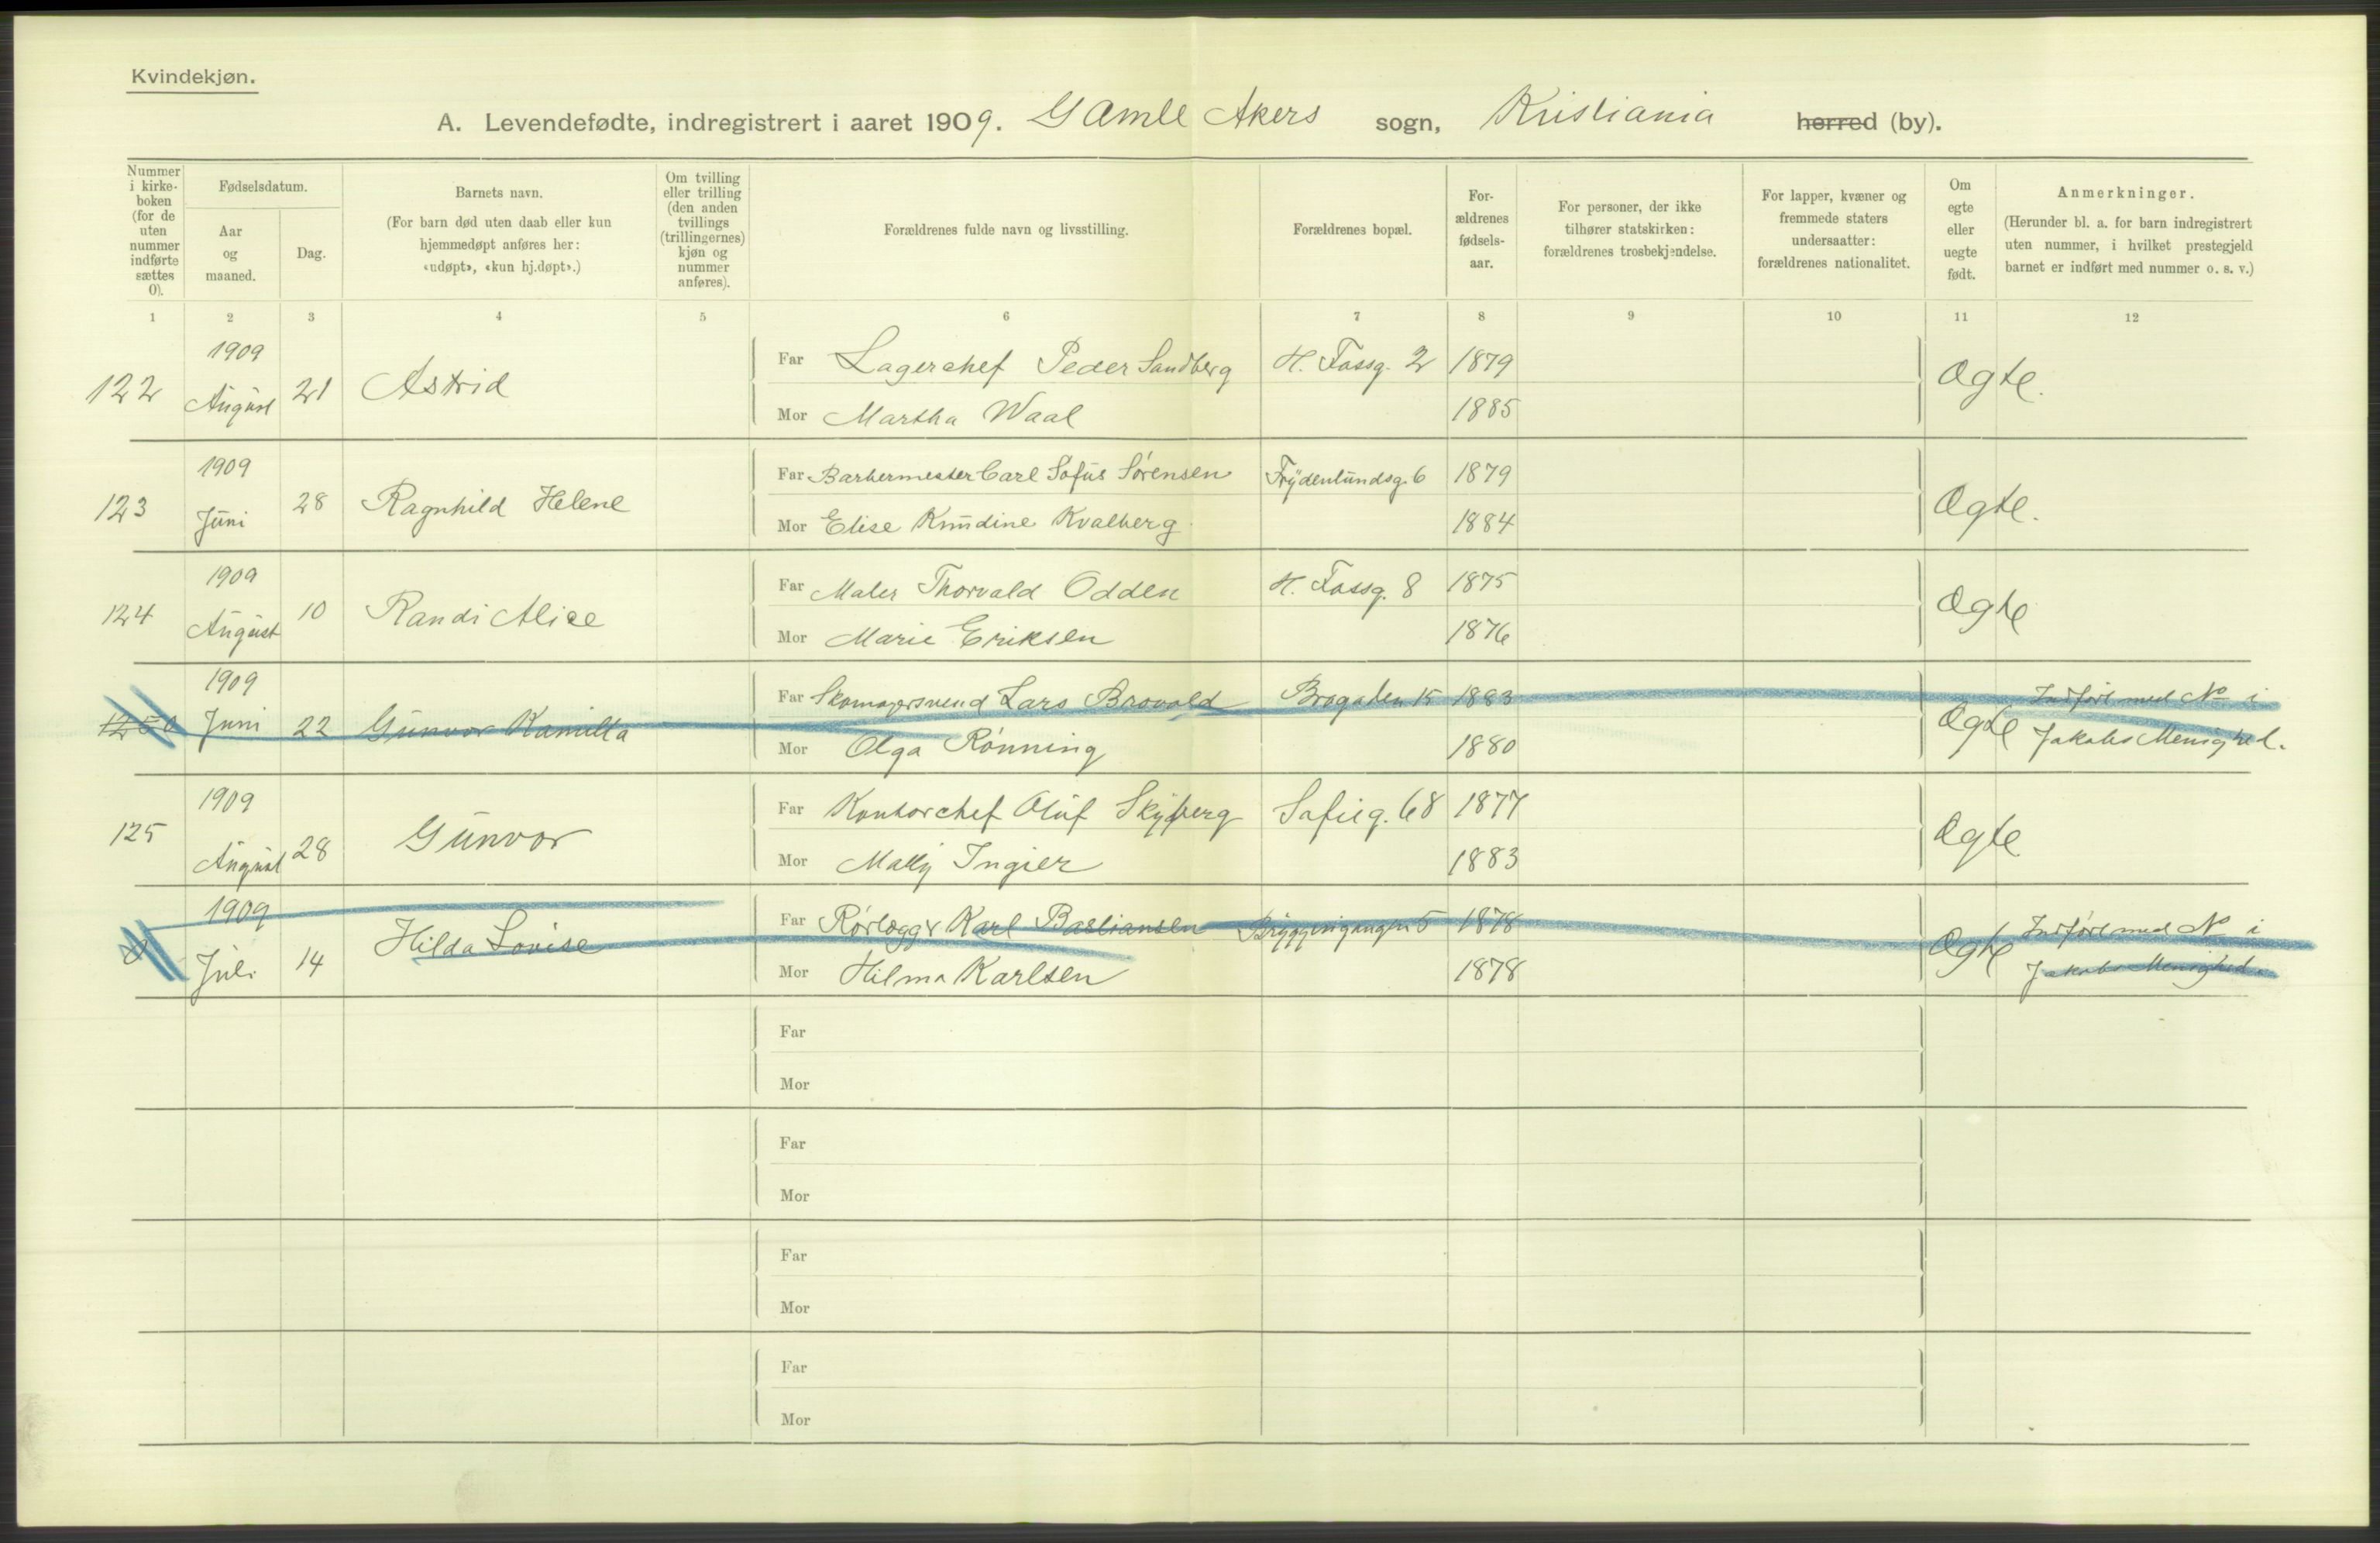 Kvindekjøn.
A. Levendefødte, indregistrert i aaret 1909. Gamle Akers sogn, Kristiania herred (by).
Nummer i kirkeboken (for de uten nummer indførte sættes 0).
Fødselsdatum.
Aar og maaned.
Dag.
Barnets navn.
(For barn død uten daab eller kun hjemmedøpt anføres her: «udøpt», «kun hj.døpt».)
Om tvilling eller trilling (den anden tvillings (trillingernes) kjøn og nummer anføres).
Forældrenes fulde navn og livsstilling.
Forældrenes bopæl.
Forældrenes fødselsaar.
For personer, der ikke tilhører statskirken: forældrenes trosbekjendelse.
For lapper, kvæner og fremmede staters undersaatter: forældrenes nationalitet.
Om egte eller uegte født.
Anmerkninger.
(Herunder bl. a. for barn indregistrert uten nummer, i hvilket prestegjeld barnet er indført med nummer o. s. v.)
1 2 3 4 5 6 7 8 9 10 11 12
122 1909 August 21 Astrid Far Lagerchef Peder Sandberg H. Fossg. 2 1879 Ægte.
Mor Martha Waal 1885
123 1909 Juni 28 Ragnhild Helene Far Barbermester Carl Sofus Sørensen Frydenlundsg. 6 1879 Ægte.
Mor Elise Knudine Kvalberg 1884
124 1909 August 10 Randi Alice Far Maler Thorvald Odden H. Fossg. 8 1875 Ægte
Mor Marie Eriksen 1876
0 1909 Juni 22 Gunvor Kamilla Far Skomagersvend Lars Brovold Brogaten 15 1883 Ægte Indført med No i
Mor Olga Rønning 1880 Jakobs Menighed.
125 1909 August 28 Gunvor Far Kontorchef Oluf Skjberg Sofieg. 68 1877 Ægte
Mor Mally Ingier 1883
0 1909 Juli 14 Hilda Lovise Far Rørlægger Karl Bastiansen 5 1878 Ægte Indført med No i
Mor Hilma Karlsen 1878 Jakobs Menighed.
Far
Mor
Far
Mor
Far
Mor
Far
Mor